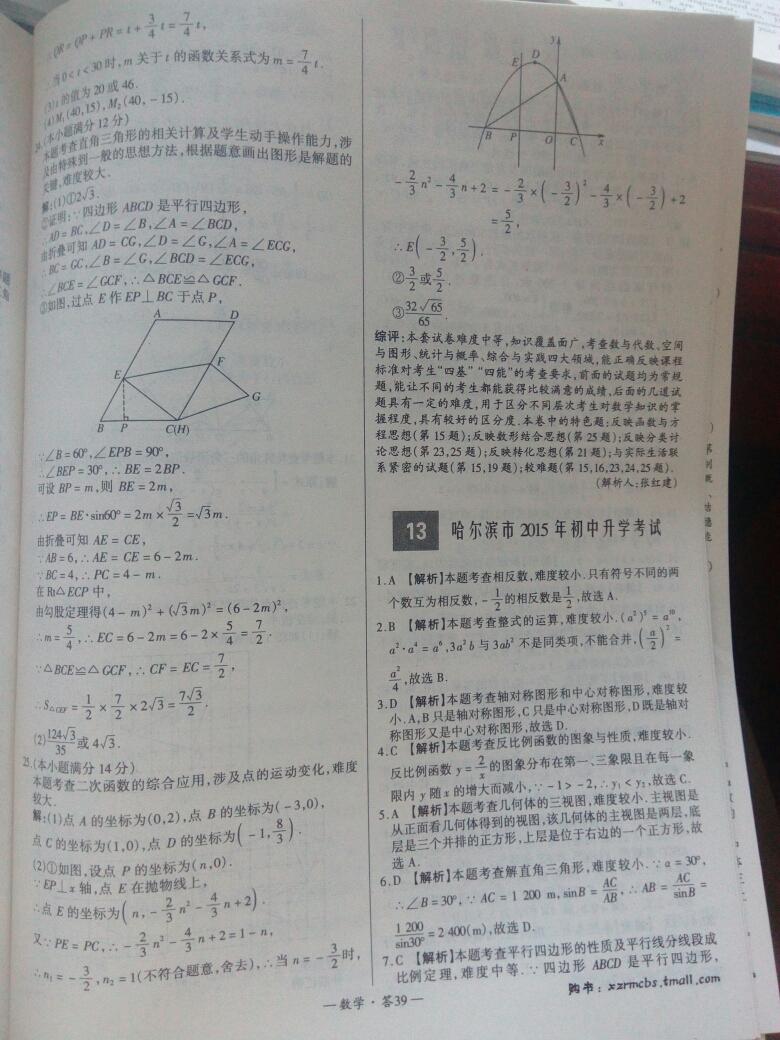 ∴QR=QP+PR=t+3/4t=7/4t,
∴当0<t<30时,m关于t的函数关系式为m=7/4t.
(3)t的值为20或46.
(4)M₁(40,15),M₂(40,-15).
24.(本小题满分12分)
本题考查直角三角形的相关计算及学生动手操作能力,涉
及由特殊到一般的思想方法,根据题意画出图形是解题的
关键,难度较大.
解:(1)①2√3.
②证明:∵四边形ABCD是平行四边形,
∴AD=BC,∠D=∠B,∠A=∠BCD,
由折叠可知AD=CG,∠D=∠G,∠A=∠ECG,
∴BC=GC,∠B=∠G,∠BCD=∠ECG,
∴∠BCE=∠GCF,∴△BCE≌△GCF.
③如图,过点E作EP⊥BC于点P,
A D
E F
G
B P C(H)
∵∠B=60°,∠EPB=90°,
∴∠BEP=30°,∴BE=2BP.
可设BP=m,则BE=2m,
∴EP=BE·sin60°=2m×√3/2=√3m.
由折叠可知AE=CE,
∵AB=6,∴AE=CE=6-2m.
∵BC=4,∴PC=4-m.
在Rt△ECP中,
由勾股定理得(4-m)²+(√3m)²=(6-2m)²,
∴m=5/4,∴EC=6-2m=6-2×5/4=7/2,
∵△BCE≌△GCF,∴CF=EC=7/2,
∴S△CEF=1/2×7/2×2√3=7√3/2.
(2)124√3/35或4√3.
25.(本小题满分14分)
本题考查二次函数的综合应用,涉及点的运动变化,难度
较大.
解:(1)点A的坐标为(0,2),点B的坐标为(-3,0),
点C的坐标为(1,0),点D的坐标为(-1,8/3).
(2)①如图,设点P的坐标为(n,0).
∵EP⊥x轴,点E在抛物线上,
∴点E的坐标为(n,-2/3n²-4/3n+2).
又∵PE=PC,∴-2/3n²-4/3n+2=1-n,
∴n₁=-3/2,n₂=1(不符合题意,舍去),∴当n=-3/2时,
y
E D
A
B P O C x
-2/3n²-4/3n+2=-2/3×(-3/2)²-4/3×(-3/2)+2
=5/2,
∴E(-3/2,5/2).
②3/2或5/2.
③32√65/65.
综评:本套试卷难度中等,知识覆盖面广,考查数与代数、空间
与图形、统计与概率、综合与实践四大领域,能正确反映课程
标准对考生“四基”“四能”的考查要求,前面的试题均为常规
题,能让不同的考生都能获得比较满意的成绩,后面的几道试
题具有一定的难度,用于区分不同层次考生对数学知识的掌
握程度,具有较好的区分度.本卷中的特色题:反映函数与方
程思想(第15题);反映数形结合思想(第25题);反映分类讨
论思想(第23,25题);反映转化思想(第21题);与实际生活联
系紧密的试题(第15,19题);较难题(第15,16,23,24,25题).
(解析人:张红建)
13 哈尔滨市2015年初中升学考试
1.A 【解析】本题考查相反数,难度较小.只有符号不同的两
个数互为相反数,-1/2的相反数是1/2,故选A.
2.B 【解析】本题考查整式的运算,难度较小.(a²)⁵=a¹⁰,
a²·a⁴=a⁶,3a²b与3ab²不是同类项,不能合并,(a/2)²=
a²/4,故选B.
3.D 【解析】本题考查轴对称图形和中心对称图形,难度较
小.A,B只是轴对称图形,C只是中心对称图形,D既是轴对
称图形又是中心对称图形,故选D.
4.C 【解析】本题考查反比例函数的图象与性质,难度较小.
反比例函数y=2/x的图象分布在第一、三象限且在每一象
限内y随x的增大而减小,∵-1>-2,∴y₁<y₂,故选C.
5.A 【解析】本题考查几何体的三视图,难度较小.主视图是
从正面看几何体得到的视图,该几何体的主视图是两层,底
层是三个并排的正方形,上层是位于右边的一个正方形,故
选A.
6.D 【解析】本题考查解直角三角形,难度较小.∵α=30°,
∴∠B=30°,∵AC=1 200 m,sinB=AC/AB,∴AB=AC/sinB=
1 200/sin30°=2 400(m),故选D.
7.C 【解析】本题考查平行四边形的性质及平行线分线段成
比例定理,难度中等.∵四边形ABCD是平行四边形,
购书:xzrmcbs.tmall.com
—数学·答39—